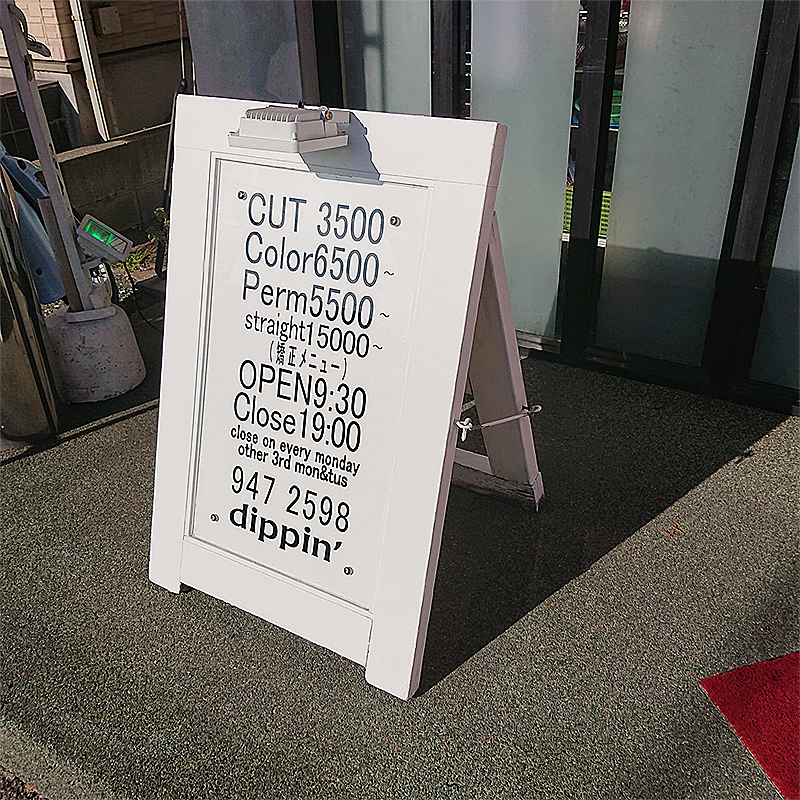 CUT 3500
Color6500~
Perm5500~
straight15000~
(矯正メニュー)
OPEN9:30
Close19:00
close on every monday
other 3rd mon&tus
947 2598
dippin'